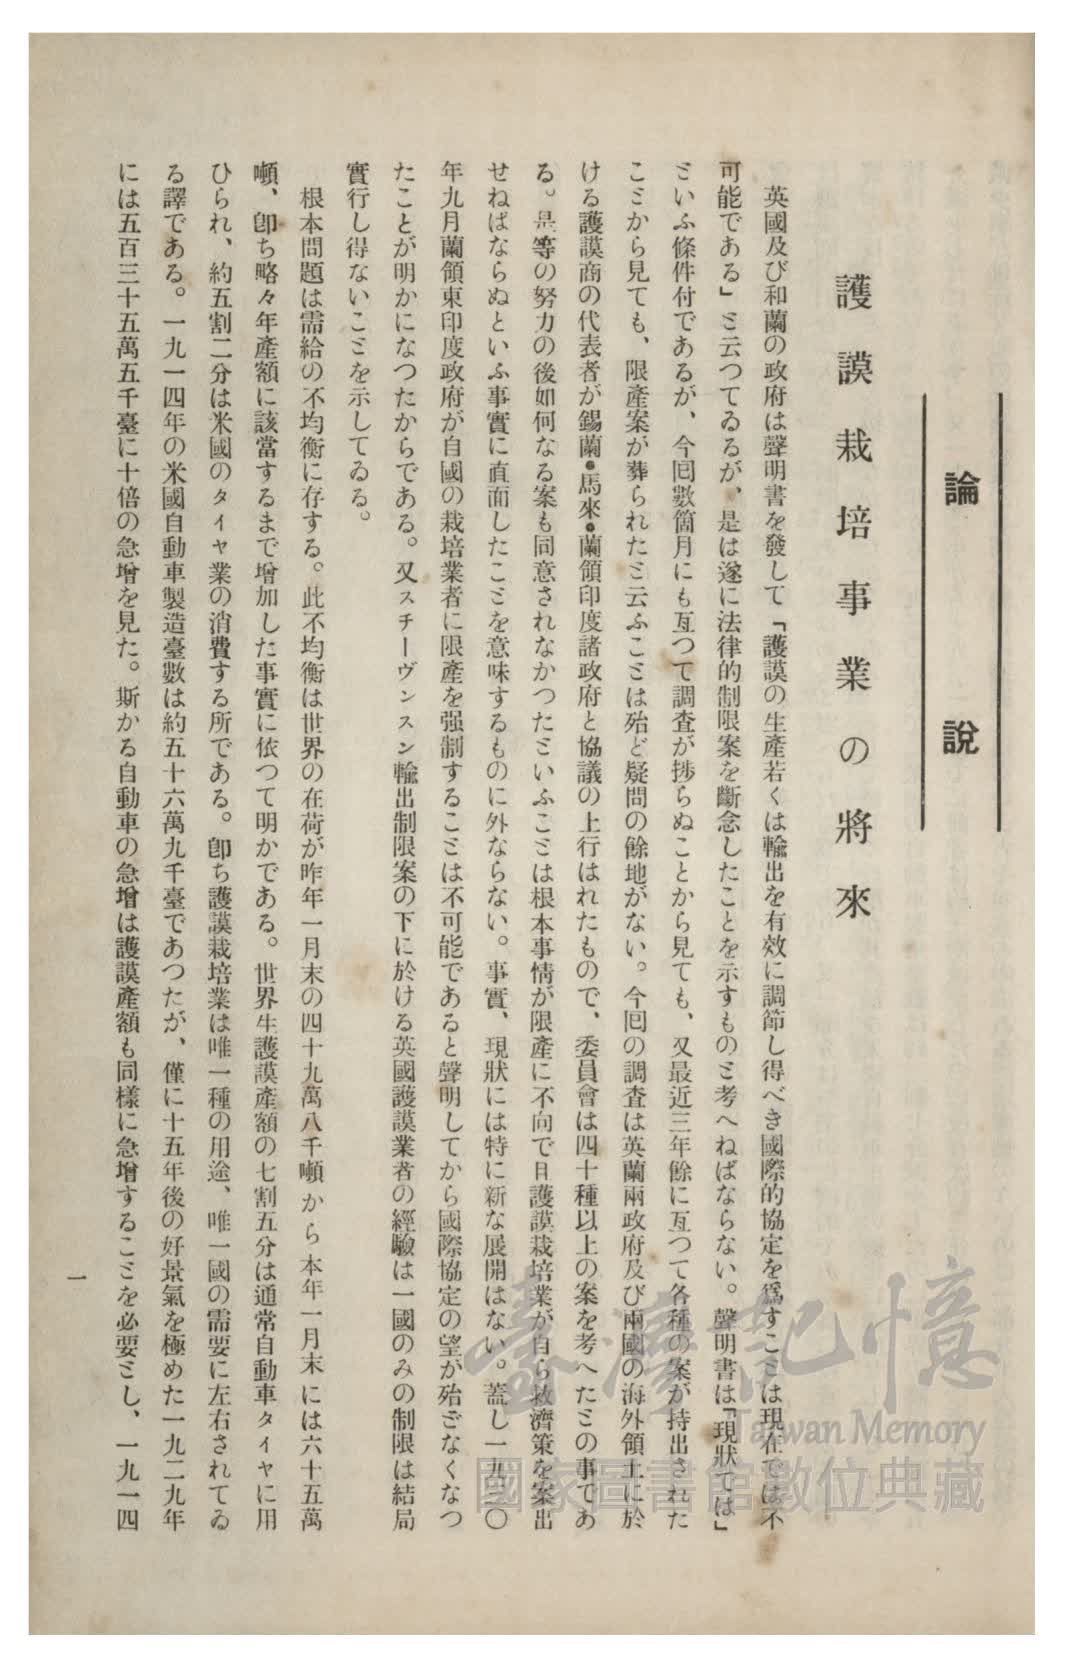 論說
護謨栽培事業の將來
英國及び和蘭の政府は聲明書を發して「護謨の生產若くは輸出を有效に調節し得べき國際的協定を爲すことは現在では不
可能である」と云つてゐるが、是は遂に法律的制限案を斷念したことを示すものと考へねばならない。聲明書は「現狀では」
といふ條件付であるが、今囘數箇月にも亙つて調査が捗らぬことから見ても、又最近三年餘に亙つて各種の案が持出された
ことから見ても、限產案が葬られたと云ふことは殆ど疑問の餘地がない。今囘の調査は英蘭兩政府及び兩國の海外領土に於
ける護謨商の代表者が錫蘭•馬來•蘭領印度諸政府と協議の上行はれたもので、委員會は四十種以上の案を考へたとの事であ
る。是等の努力の後如何なる案も同意されなかつたといふことは根本事情が限產に不向で日護謨栽培業が自ら救濟策を案出
せねばならぬといふ事實に直面したことを意味するものに外ならない。事實、現狀には特に新な展開はない。蓋し一九三〇
年九月蘭領東印度政府が自國の栽培業者に限產を强制することは不可能であると聲明してから國際協定の望が殆どなくなつ
たことが明かになつたからである。又スチーヴンスン輸出制限案の下に於ける英國護謨業者の經驗は一國のみの制限は結局
實行し得ないことを示してゐる。
根本問題は需給の不均衡に存する。此不均衡は世界の在荷が昨年一月末の四十九萬八千噸から本年一月末には六十五萬
噸、卽ち略々年產額に該當するまで增加した事實に依つて明かである。世界生護謨產額の七割五分は通常自動車タイヤに用
ひられ、約五割二分は米國のタイヤ業の消費する所である。卽ち護謨栽培業は唯一種の用途、唯一國の需要に左右されてゐ
る譯である。一九一四年の米國自動車製造臺數は約五十六萬九千臺であつたが、僅に十五年後の好景氣を極めた一九二九年
には五百三十五萬五千臺に十倍の急增を見た。斯かる自動車の急增は護謨產額も同樣に急增することを必要とし、一九一四
一
臺灣記憶
Taiwan Memory
國家圖書館數位典藏